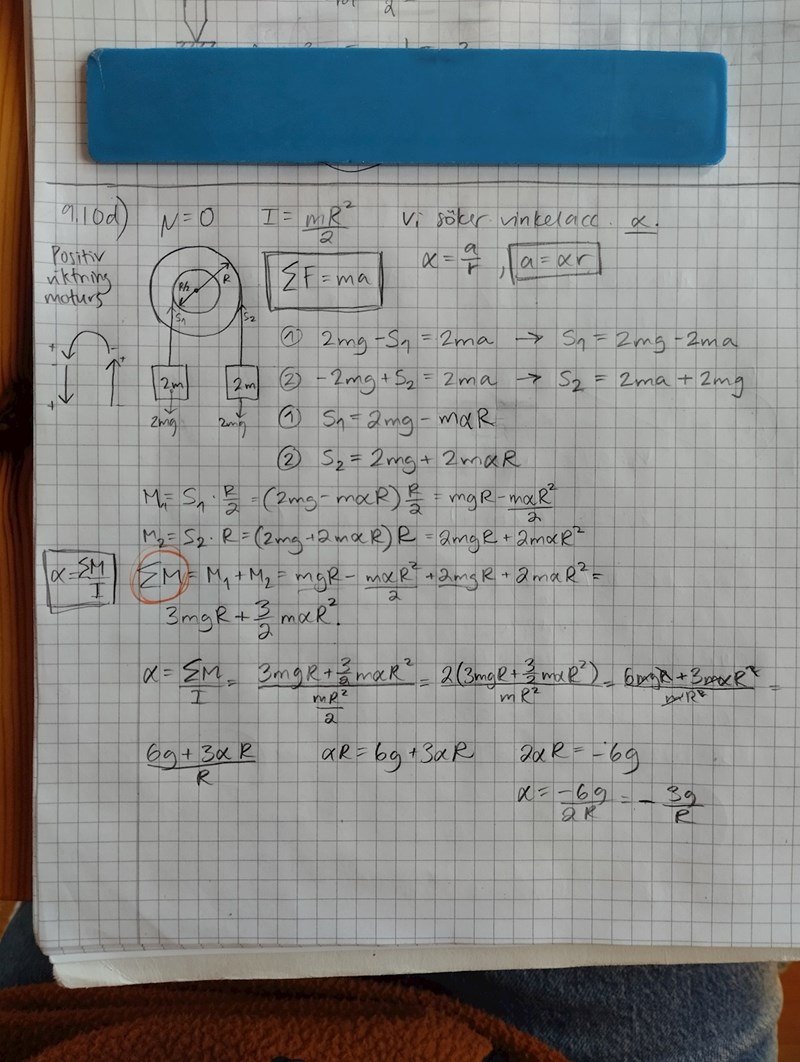 9.10d) N=0 I = mR²/2 Vi söker vinkelacc. α.
Positiv
viktning
moturs
ΣF = ma
α = a/r , a = αr
R/2 R
S₁ S₂
+ - + +
2m 2m
2mg 2mg
① 2mg - S₁ = 2ma → S₁ = 2mg - 2ma
② -2mg + S₂ = 2ma → S₂ = 2ma + 2mg
① S₁ = 2mg - mαR
② S₂ = 2mg + 2mαR
M₁ = S₁ · R/2 = (2mg - mαR) R/2 = mgR - mαR²/2
M₂ = S₂ · R = (2mg + 2mαR) R = 2mgR + 2mαR²
α = ΣM/I ΣM = M₁ + M₂ = mgR - mαR²/2 + 2mgR + 2mαR² =
3mgR + 3/2 mαR².
α = ΣM/I = (3mgR + 3/2 mαR²)/(mR²/2) = 2(3mgR + 3/2 mαR²)/mR² = (6mgR + 3mαR²)/mR² =
(6g + 3αR)/R αR = 6g + 3αR 2αR = -6g
α = -6g/2R = - 3g/R